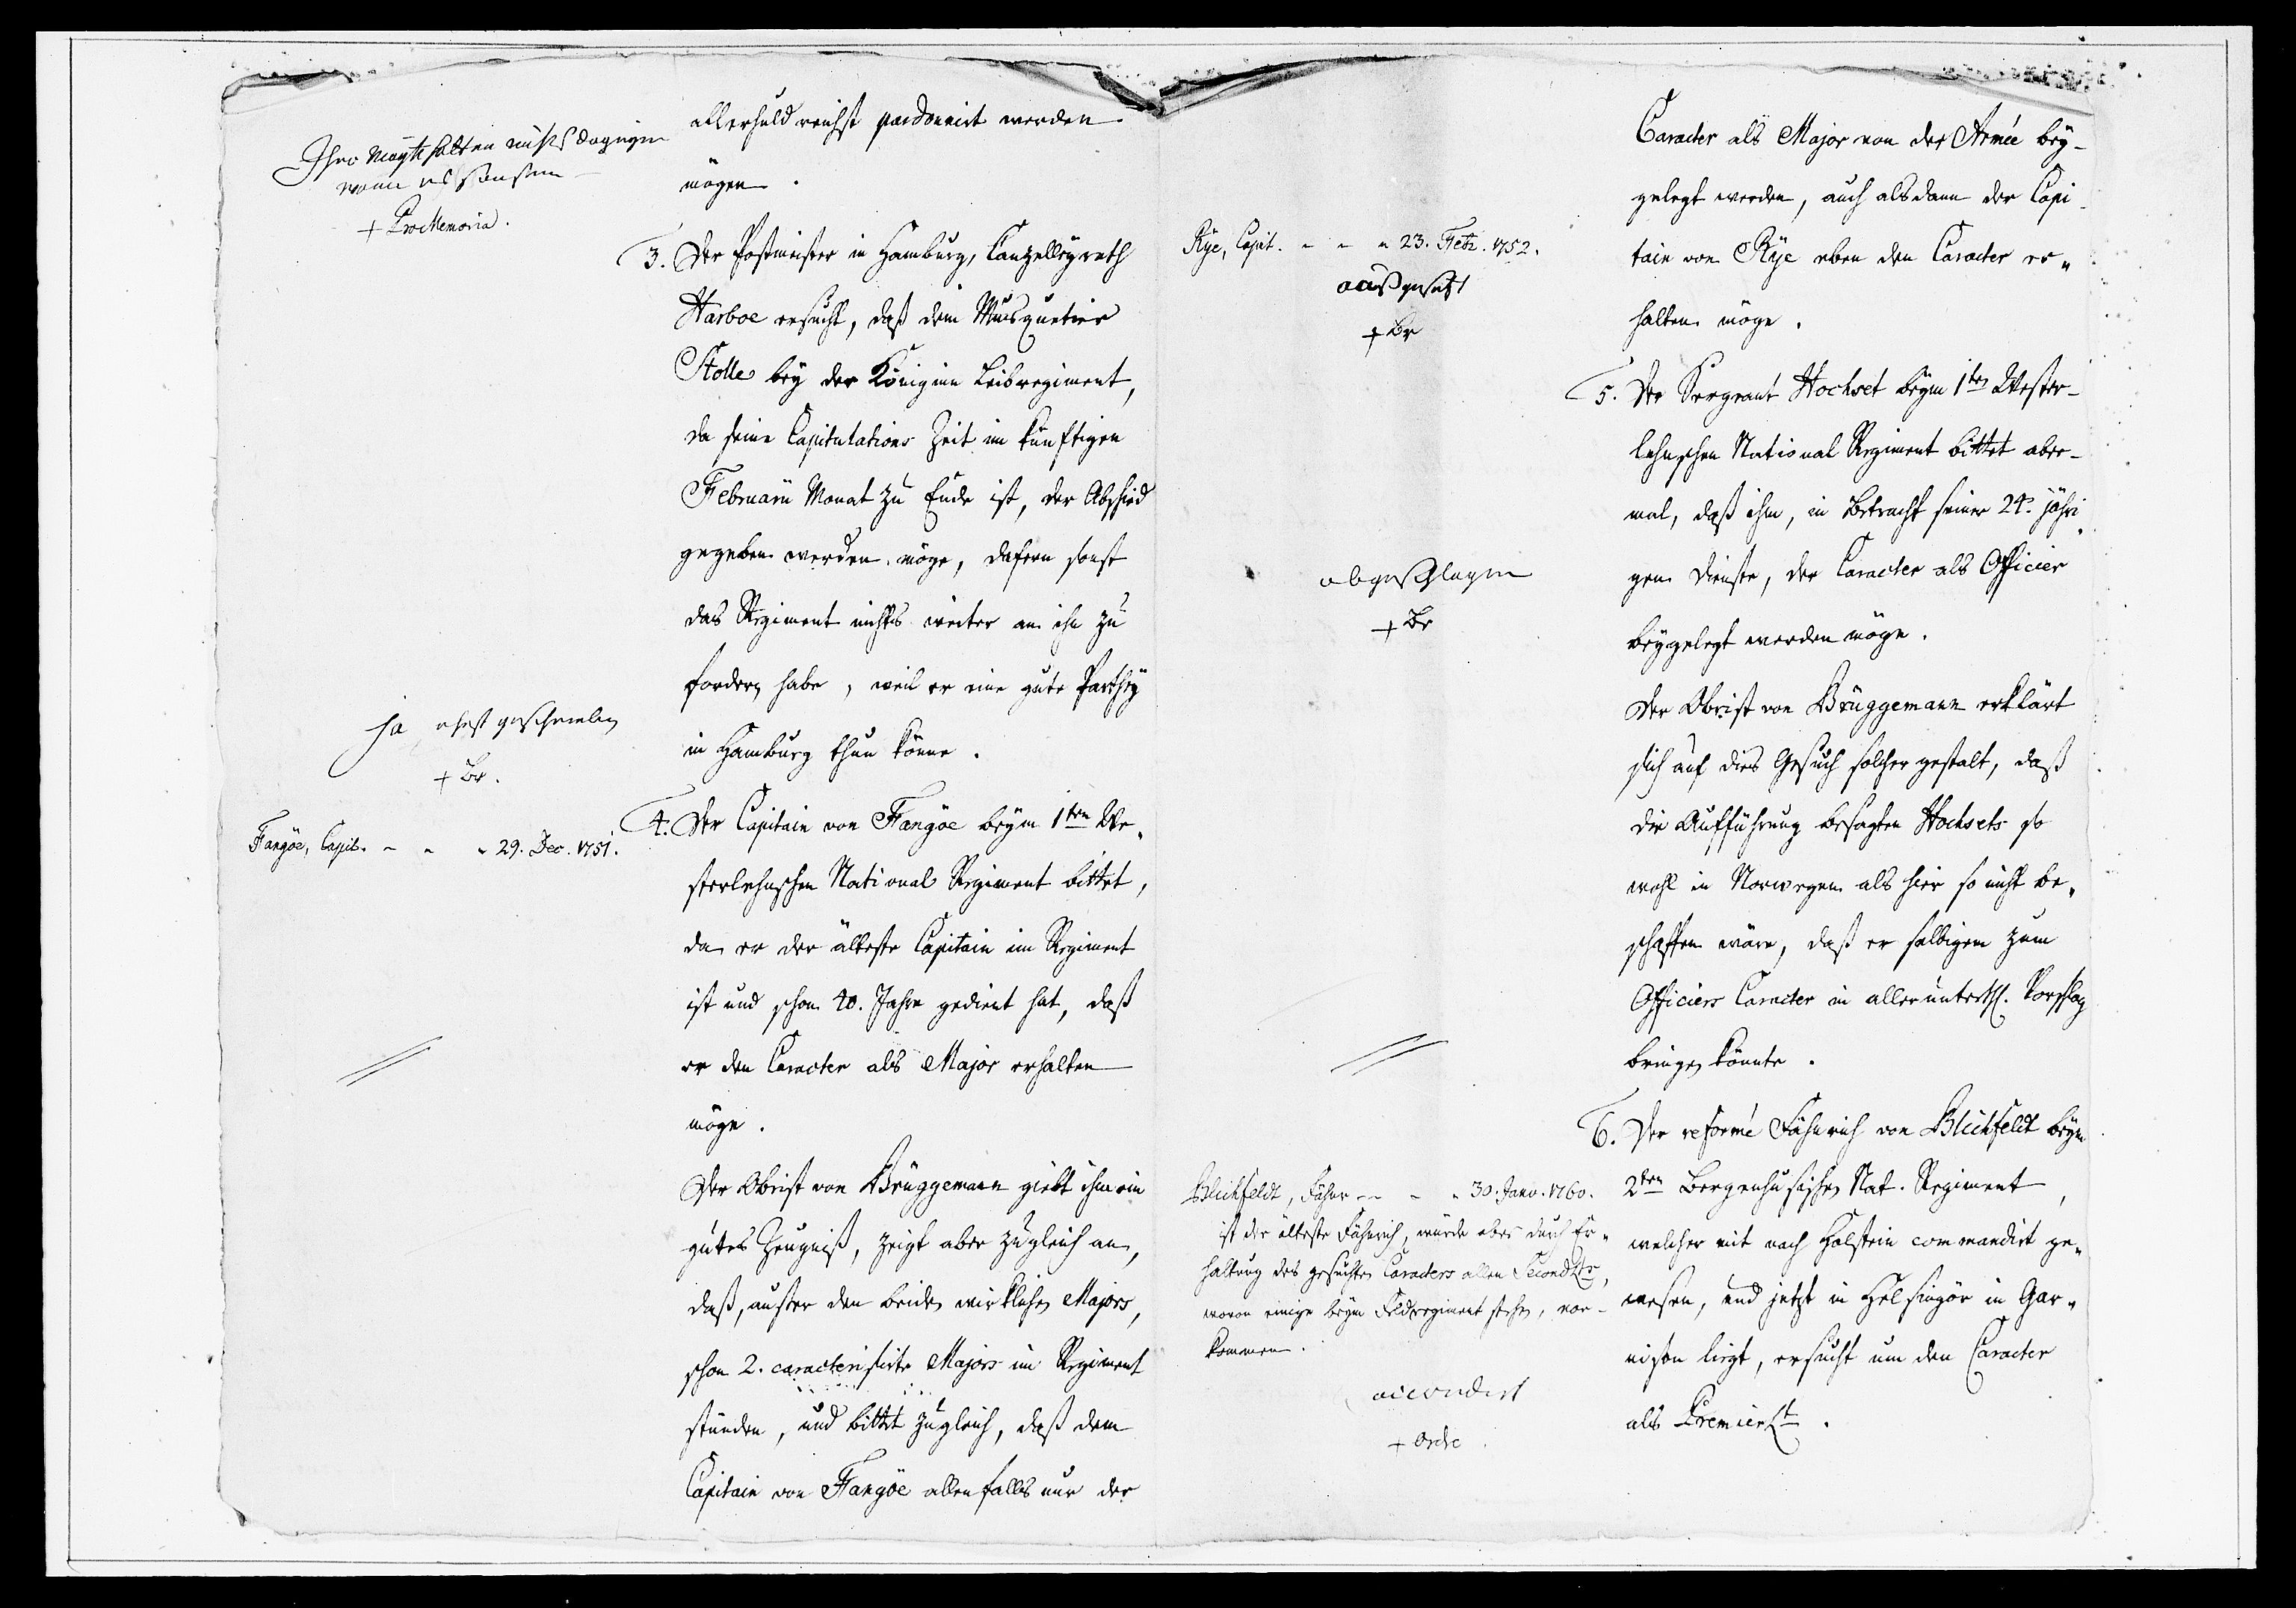 allerhuldreichst pardonnirt werden
mögen.
Ihro Maytt halten nichts dagegen
wann es
+ ProMemoria.
3. Der Postmeister in Hamburg, Cantzelleyrath
Harboe ersucht, daß dem Musquetier
Stolle bey der Königinn Leibregiment,
da seine Capitulations Zeit im künftigen
Februarii Monat zu Ende ist, der Abschied
gegeben werden möge, dafern sonst
das Regiment nichts weiter an ihn zu
fordern habe, weil er eine gute Parthey
in Hamburg thun könne.
ja
+ Br.
4. Der Capitain von Fangöe beym 1ten We„
sterlehnschen National Regiment bittet,
da er der älteste Capitain im Regiment
ist und schon 40. Jahre gedient hat, daß
er den Caracter als Major erhalten
möge.
Fangöe, Capit. - - - 29. Dec. 1751.
Der Obrist von Brüggemann giebt ihm ein
gutes Zeugniß, zeigt aber zugleich an,
daß, ausser den beiden wirklichen Majors,
schon 2. caracterisirte Majors im Regiment
stünden, und bittet zugleich, daß dem
Capitain von Fangöe allenfalls nur der
Caracter als Major von der Armée bey-
gelegt werden, auch alsdann der Capi-
tain von Rÿe eben den Caracter er„
halten möge.
Rÿe, Capit. - - - 23. Febr. 1752.
ausgesetzt
+ Br
5. Der Sergeant Hochset beym 1ten Wester-
lehnschen National Regiment bittet aber-
mal, daß ihm, in Betracht seiner 24. jähri„
gen Dienste, der Caracter als Officier
beygelegt werden möge.
abgeschlagen
+ Br
Der Obrist von Brüggemann erklärt
sich auf dies Gesuch solchergestalt, daß
die Aufführung besagten Hochsets so
wohl in Norwegen als hier so nicht be„
schaffen wäre, daß er selbigen zum
Officiers Caracter in allerunterth. Vorschlag
bringen könnte.
6. Der reformé Fähnrich von Blichfeldt beym
2ten Bergenhusischen Nat. Regiment,
welcher mit nach Holstein commandirt ge„
wesen, und jetzt in Helsingör in Gar„
nison liegt, ersucht um den Caracter
als PremierLt.
Blichfeldt, Fähnr - - - 30. Janv. 1760.
ist der älteste Fähnrich, würde aber durch Er„
haltung des gesuchten Caracters allen SecondLts,
wovon einige beym Feldregiment stehen, vor-
kommen.
accordirt
+ Ordre.